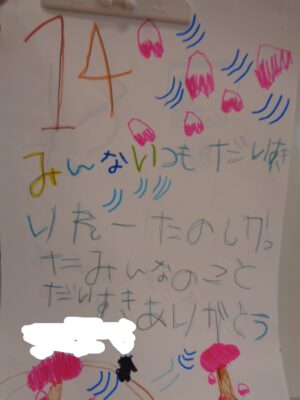 14
みんないつもだいすき
りれーたのしかっ
たみんなのこと
だいすきありがとう